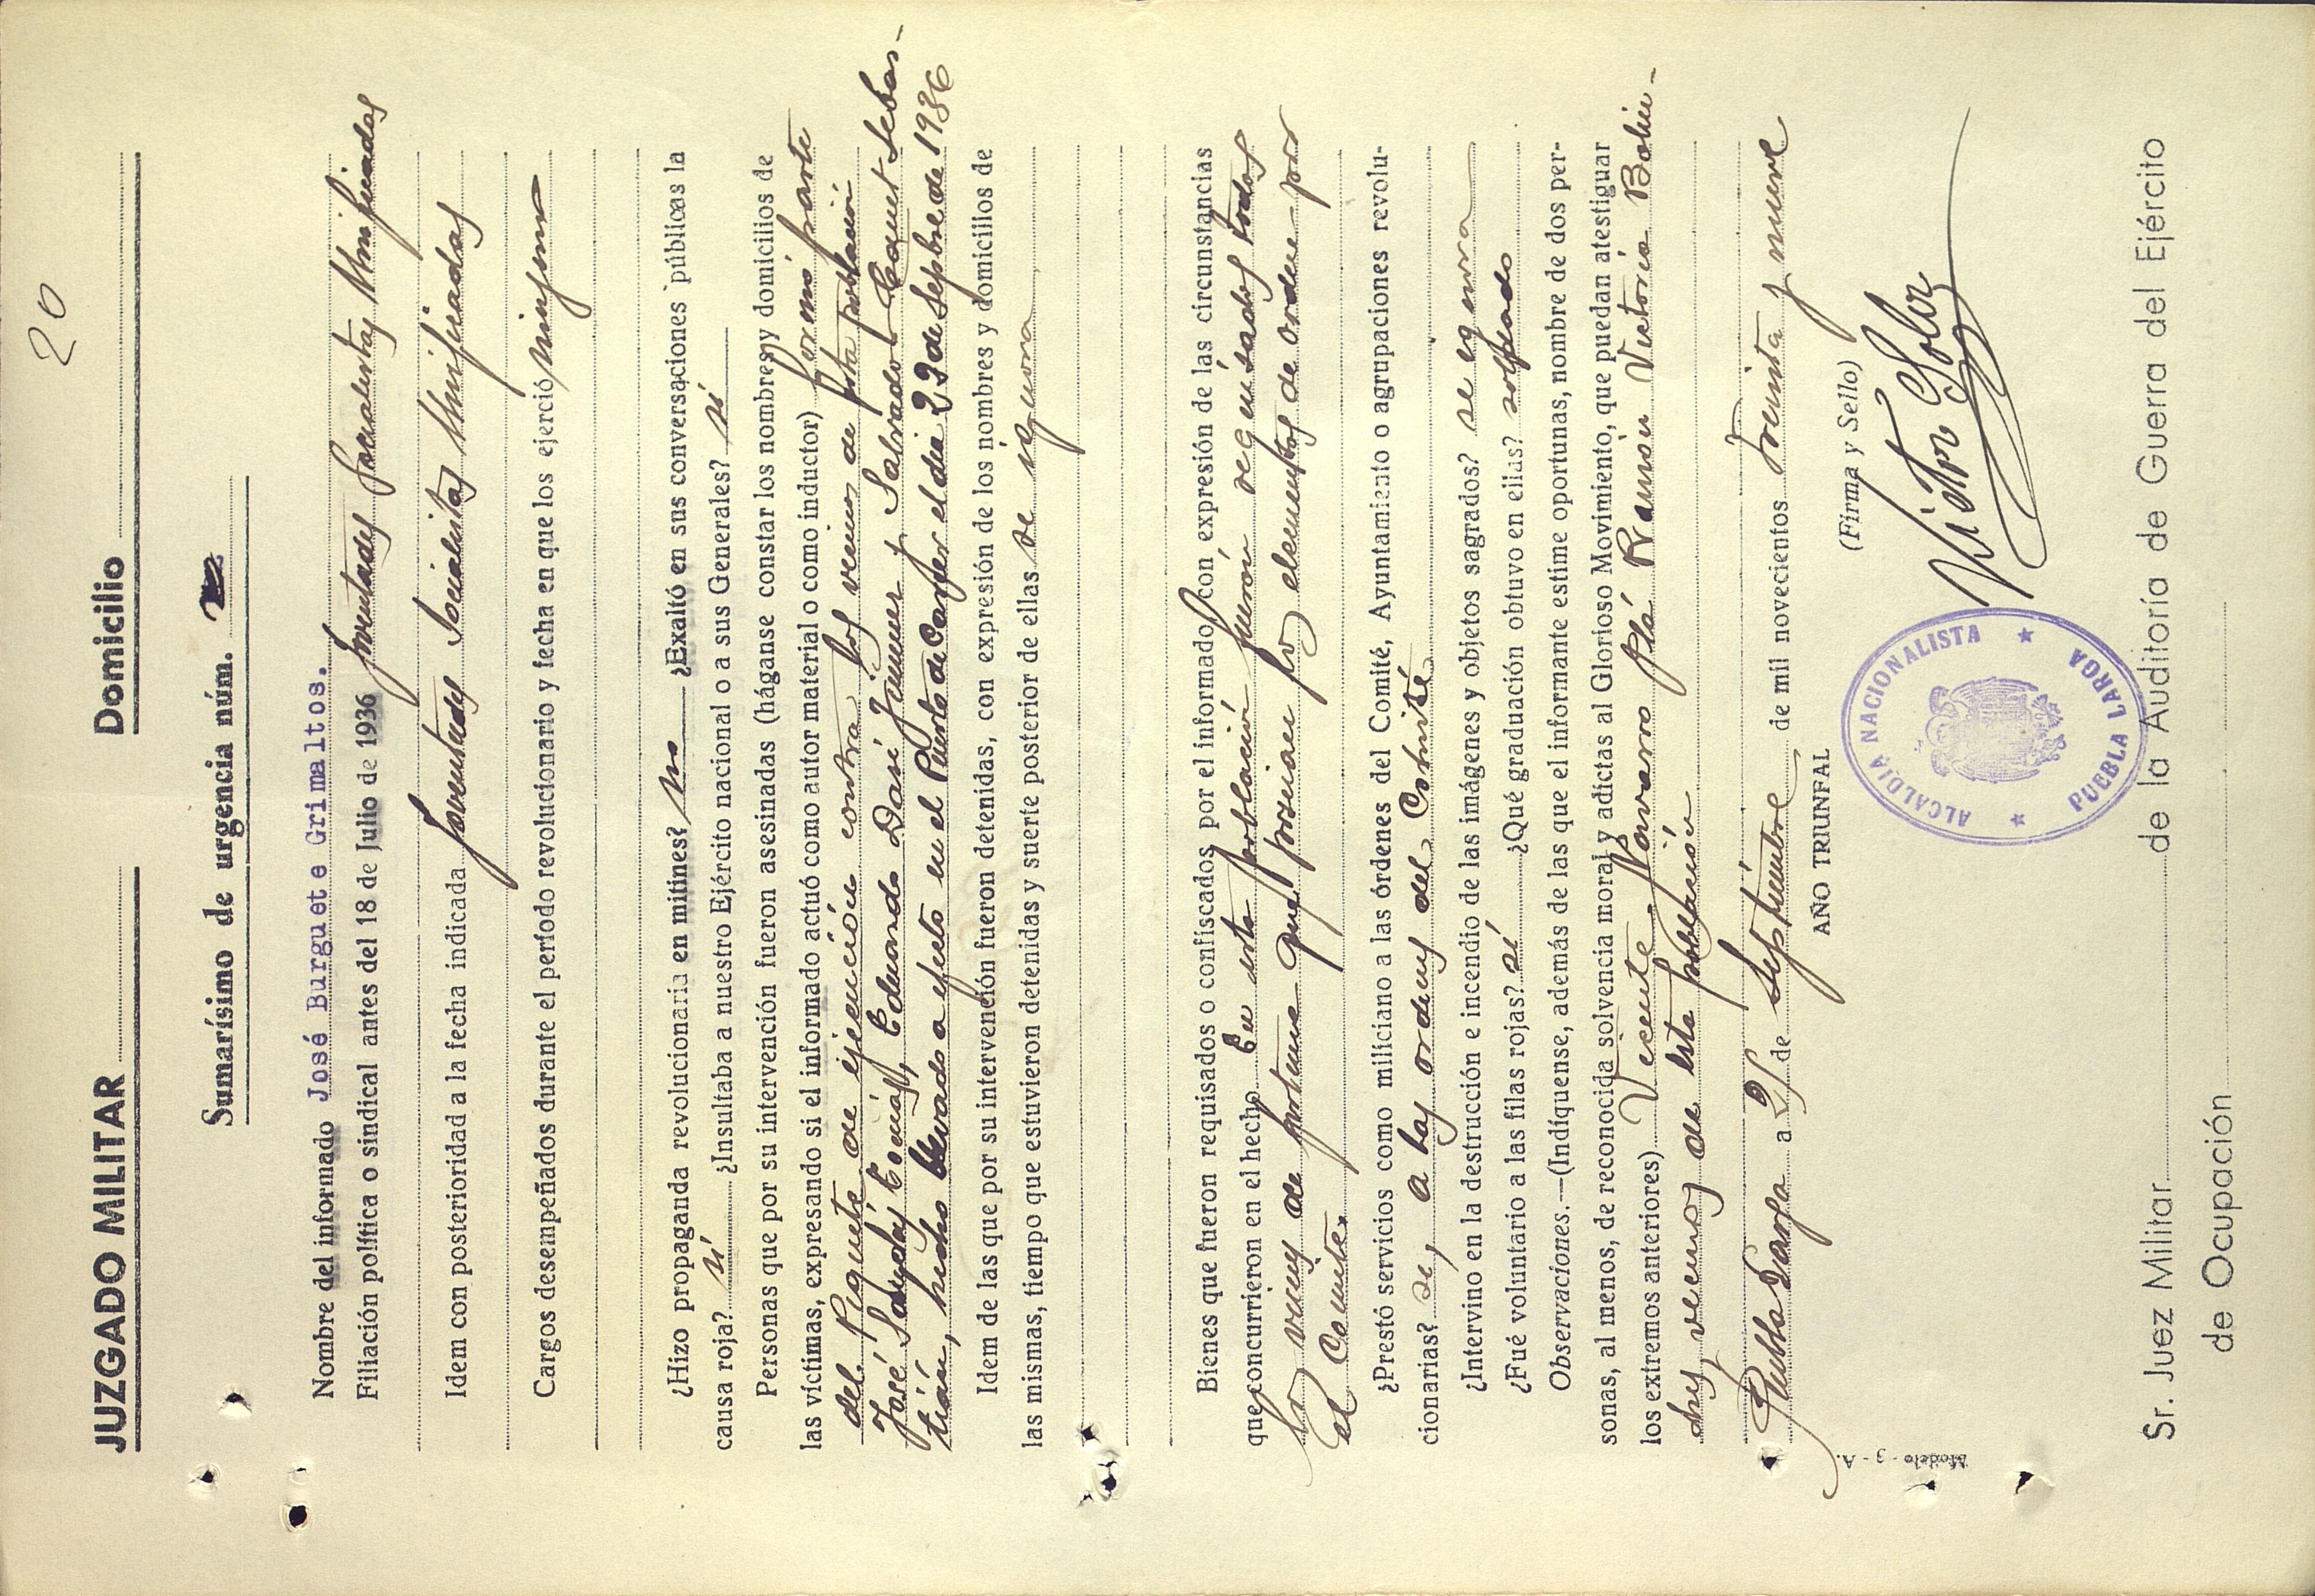 20
JUZGADO MILITAR Domicilio
Sumarísimo de urgencia núm.
Nombre del informado José Burguete Grimaltos.
Filiación política o sindical antes del 18 de Julio de 1936 Juventudes Socialistas Unificadas
Idem con posterioridad a la fecha indicada Juventudes Socialistas Unificadas
Cargos desempeñados durante el período revolucionario y fecha en que los ejerció ninguno
¿Hizo propaganda revolucionaria en mitines? no ¿Exaltó en sus conversaciones públicas la
causa roja? sí ¿Insultaba a nuestro Ejército nacional o a sus Generales? sí
Personas que por su intervención fueron asesinadas (háganse constar los nombres y domicilios de
las víctimas, expresando si el informado actuó como autor material o como inductor) formó parte
del Piquete de ejecución contra los vecinos de esta población
José Sanchis Tomás, Eduardo Dasí Jimener y Salvador Coquet Sebas-
tián, hecho llevado a efecto en el Puerto de Carger el dia 23 de Sepbre de 1936
Idem de las que por su intervención fueron detenidas, con expresión de los nombres y domicilios de
las mismas, tiempo que estuvieron detenidas y suerte posterior de ellas se ignora
Bienes que fueron requisados o confiscados por el informado, con expresión de las circunstancias
que concurrieron en el hecho En esta población fueron requisados todos
los bienes de fortuna que poseian los elementos de orden por
el Comite.
¿Prestó servicios como miliciano a las órdenes del Comité, Ayuntamiento o agrupaciones revolu-
cionarias? si, a las ordenes del Comité
¿Intervino en la destrucción e incendio de las imágenes y objetos sagrados? se ignora
¿Fué voluntario a las filas rojas? sí ¿Qué graduación obtuvo en ellas? soldado
Observaciones.—(Indíquense, además de las que el informante estime oportunas, nombre de dos per-
sonas, al menos, de reconocida solvencia moral y adictas al Glorioso Movimiento, que puedan atestiguar
los extremos anteriores) Vicente Navarro Plá Ramón Victoria Bohi-
ches, vecinos de esta población
Puebla Larga a 21 de Septiembre de mil novecientos treinta y nueve
AÑO TRIUNFAL
(Firma y Sello)
Victor Soler
ALCALDIA NACIONALISTA ★ PUEBLA LARGA ★
Modelo - 3 - A.
Sr. Juez Militar de la Auditoría de Guerra del Ejército
de Ocupación